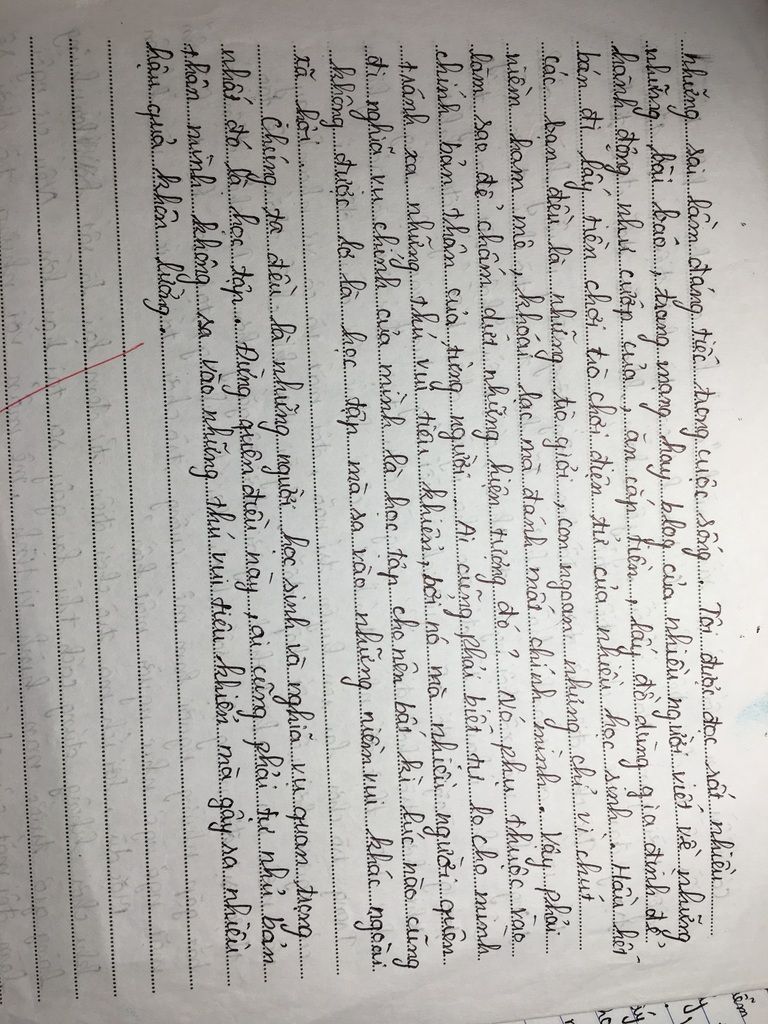 những sai lầm đáng tiếc trong cuộc sống. Tôi được đọc rất nhiều
những bài báo, trang mạng hay blog của nhiều người viết về những
hành động như cướp của, ăn cắp tiền, lấy đồ dùng gia đình để
bán đi lấy tiền chơi trò chơi điện tử của nhiều học sinh. Hầu hết
các bạn đều là những trò giỏi, con ngoan nhưng chỉ vì chút
niềm ham mê, khoái lạc mà đánh mất chính mình. Vậy phải
làm sao để chấm dứt những hiện tượng đó? Nó phụ thuộc vào
chính bản thân của từng người. Ai cũng phải biết tự lo cho mình
tránh xa những thú vui tiêu khiển, bởi nó mà nhiều người quên
đi nghĩa vụ chính của mình là học tập cho nên bất kì lúc nào cũng
không được lơ là học tập mà sa vào những niềm vui khác ngoài
xã hội.
Chúng ta đều là những người học sinh và nghĩa vụ quan trọng
nhất đó là học tập. Đừng quên điều này, ai cũng phải tự nhủ bản
thân mình không sa vào những thú vui tiêu khiển mà gây ra nhiều
hậu quả khôn lường.